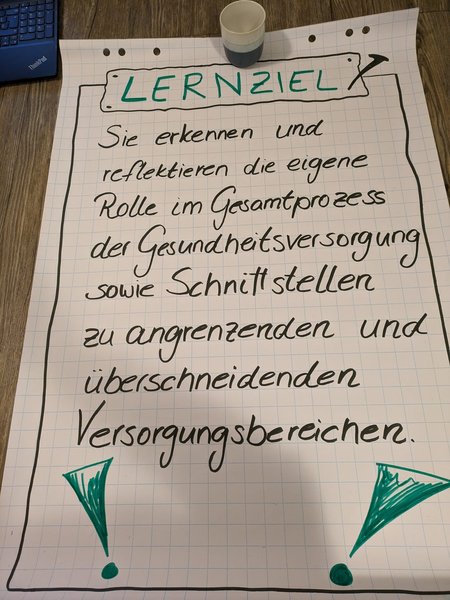 ThinkPad
LERNZIEL
Sie erkennen und
reflektieren die eigene
Rolle im Gesamtprozess
der Gesundheitsversorgung
sowie Schnittstellen
zu angrenzenden und
überschneidenden
Versorgungsbereichen.
! !